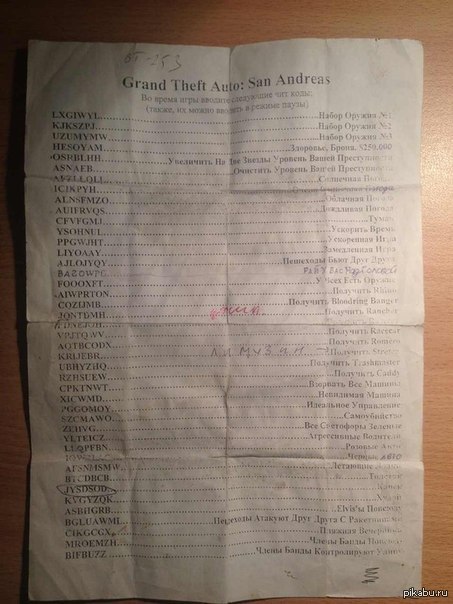 Grand Theft Auto: San Andreas
Во время игры вводите следующие чит коды:
(также, их можно вводить в режиме паузы)
LXGIWYL......Набор Оружия №1
KJKSZPJ......Набор Оружия №2
UZUMYMW......Набор Оружия №3
HESOYAM......Здоровье, Броня, $250.000
OSPBLHH......Увеличить На Две Звезды Уровень Вашей Преступности
ASNAEB......Очистить Уровень Вашей Преступности
AFZLLQLL......Солнечная
ICIKPYH......
ALNSFMZO......Облачная Погода
AUIFRVQS......Дождливая Погода
CFVFGMJ......Туман
YSOHNUL......Ускорить Время
PPGWJHT......Ускоренная Игра
LIYOAAY......Замедленная Игра
AJLOJYQY......Пешеходы Бьют Друг Друга
BAZOWPG
FOOOXFT......У Всех Есть Оружие
AIWPRTON......Получить Rhino
CQZIJMB......Получить Bloodring Banger
JQNTDMH......Получить Rancher
VPJTQWV......Получить Racecar
AQTBCODX......Получить Romero
KRIJEBR......ЛИМУЗИН Получить Stretch
UBHYZHQ......Получить Trashmaster
RZHSUEW......Получить Caddy
CPKTNWT......Взорвать Все Машины
XICWMD......Невидимая Машина
PGGOMOY......Идеальное Управление
SZCMAWO......Самоубийство
ZEIIVG......Все Светофоры Зеленые
YLTEICZ......Агрессивные Водители
LLQPFBN......Розовые Авто
Черные АВТО
AFSNMSMW......Летающие
BTCDBCB......Толстяк
JYSDSOD......
KVGYZQK......Худой
ASBHGRB......Elvis'ы Повсюду
BGLUAWML......Пешеходы Атакуют Друг Друга С Ракетницами
CIKGCGX......Пляжная Вечеринка
MROEMZH......Члены Банды Повсюду
BIFBUZZ......Члены Банды Контролируют Улицы
pikabu.ru